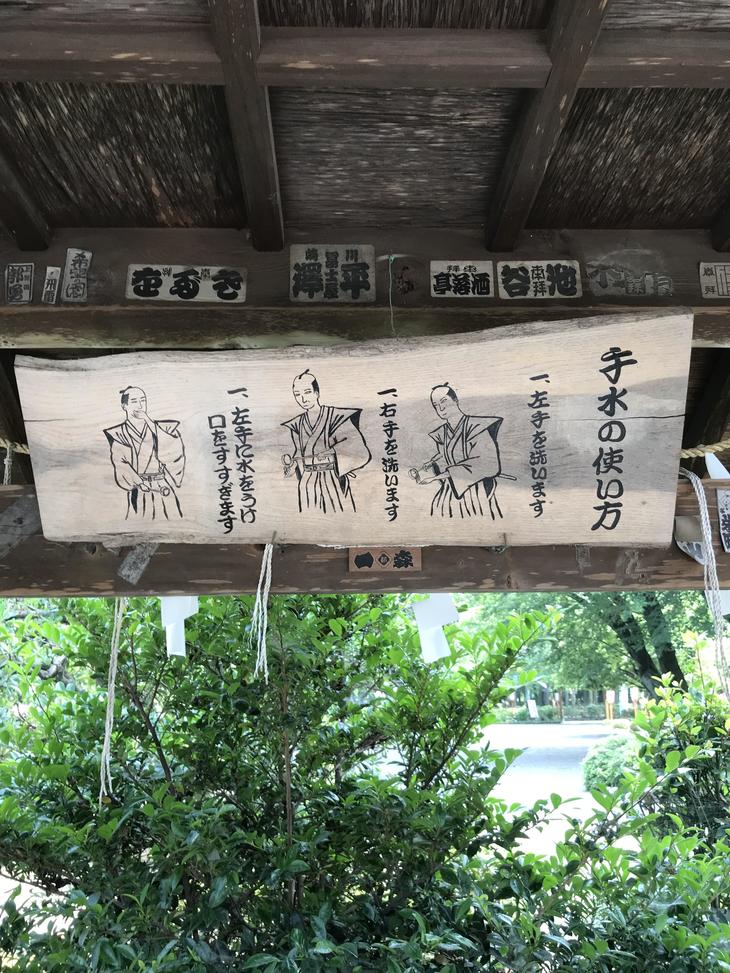 手水の使い方
一、左手を洗います
一、右手を洗います
一、左手に水をうけ
口をすすぎます
川
平
冨士
澤
池
南拝
谷
酒落亭
森